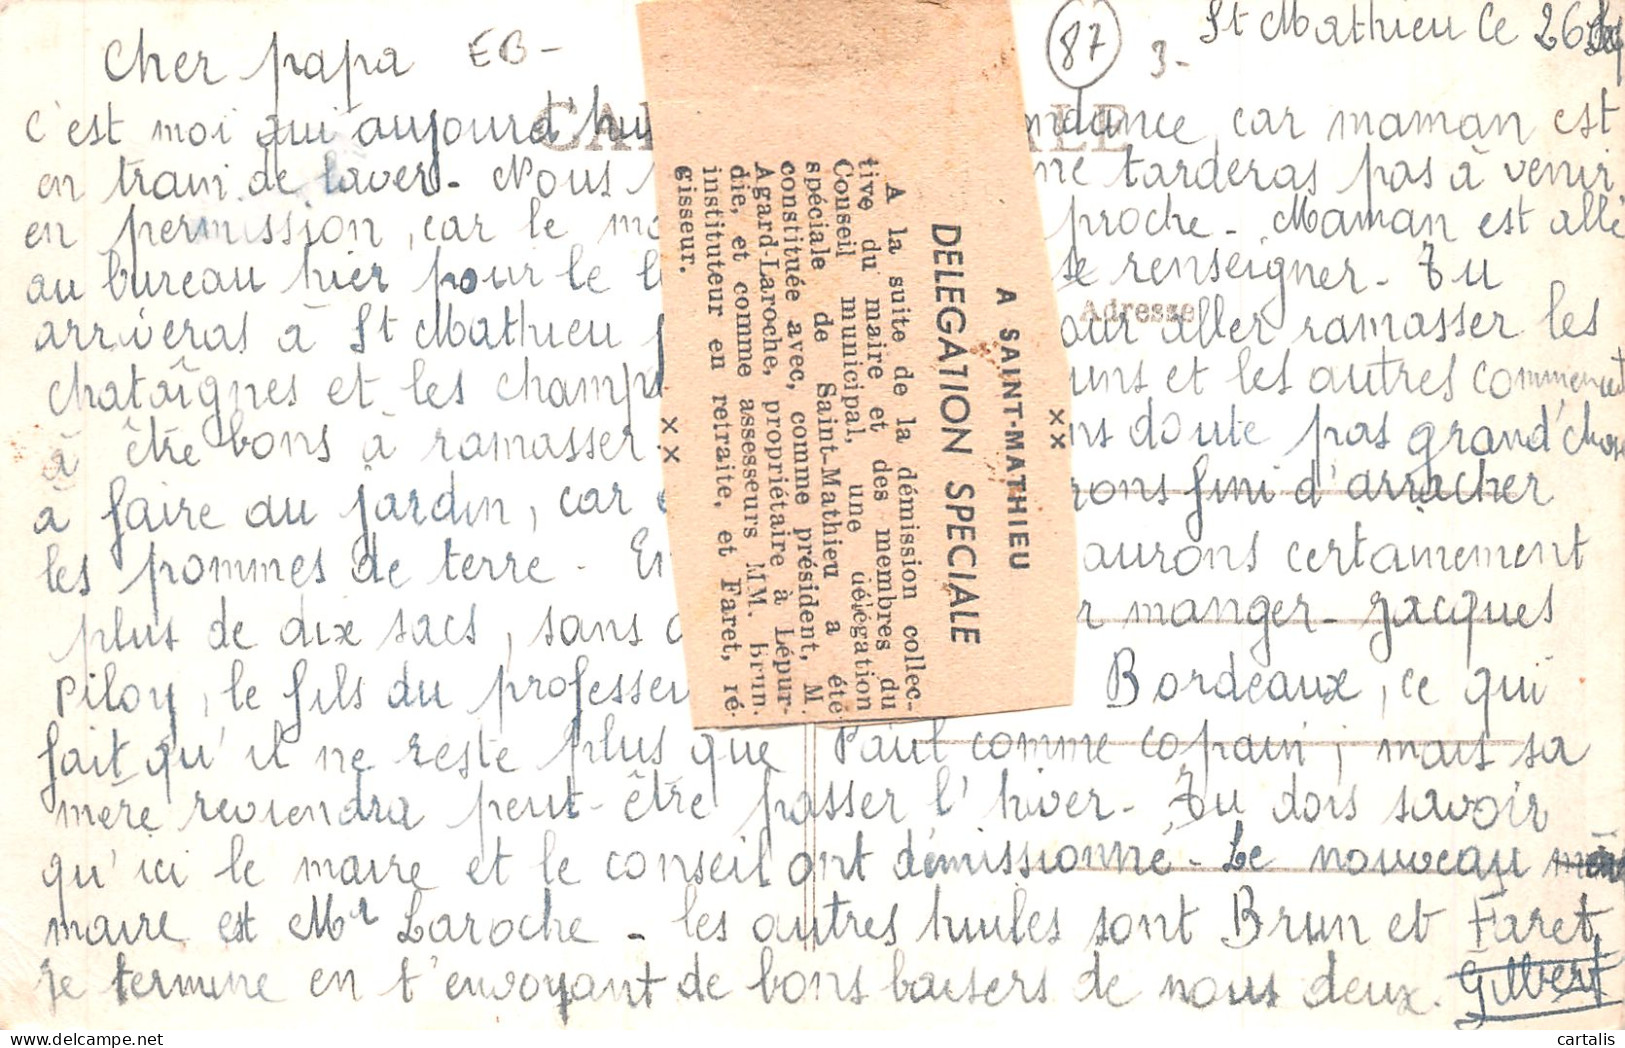 St Mathieu le 26
Cher papa EB- 87 3-
CA ALE
c'est moi qui aujourd'hui ndance car maman est
en train de laver - Nous ne tarderas pas à venir
en permission, car le mo proche - Maman est allé
au bureau hier pour le l se renseigner - Tu
Adresse
arriveras à St Mathieu our aller ramasser les
chataîgnes et les champ uns et les autres commencent
à être bons à ramasser ns doute pas grand'chose
à faire au jardin, car rons fini d'arracher
les pommes de terre - En aurons certainement
plus de dix sacs, sans r manger - Jacques
Piloy, le fils du professeu Bordeaux, ce qui
fait qu'il ne reste plus que Paul comme copain ; mais sa
mère reviendra peut-être passer l'hiver - Tu dois savoir
qu'ici le maire et le conseil ont démissionné - Le nouveau
maire est Mr Laroche - les autres huiles sont Brun et Faret
je termine en t'envoyant de bons baisers de nous deux.
Gilbert
A SAINT-MATHIEU
DELEGATION SPECIALE
A la suite de la démission collec-
tive du maire et des membres du
Conseil municipal, une délégation
spéciale de Saint-Mathieu a été
constituée avec, comme président, M.
Agard-Laroche, propriétaire à Lépur-
die, et comme assesseurs MM. Brun,
instituteur en retraite, et Faret, ré-
gisseur.
x x
x x
cartalis